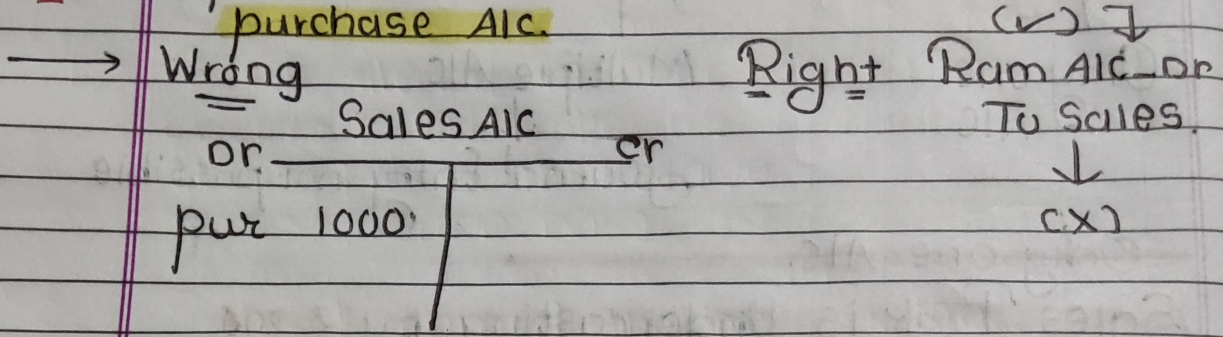 purchase A/c.
(✓) ↓
→ Wrong Right Ram A/c Dr
Sales A/c To Sales.
Dr. cr ↓
pur 1000 (x)